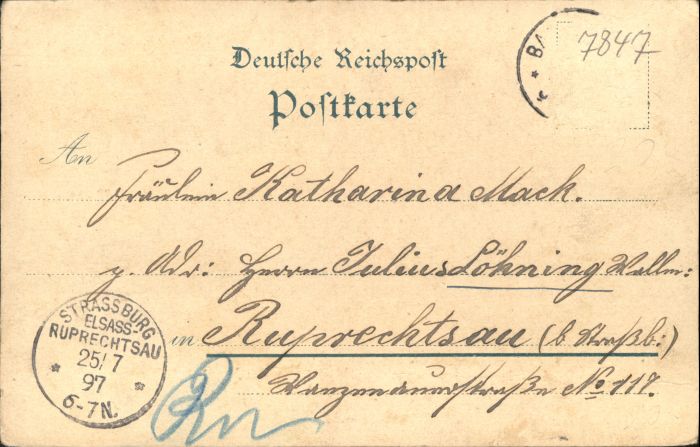 7847
BA
Deutsche Reichspost
Postkarte
An
Fräulein Katharina Mack.
p. Adr: Herrn Julius Löhning
in Ruprechtsau (b Straßb:)
Wanzenauerstraße No 117.
STRASSBURG
ELSASS
RUPRECHTSAU
25/7
97
6-7N.